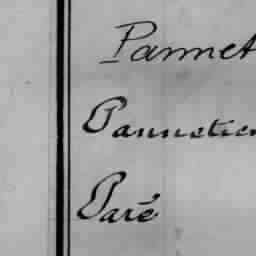 Pannet
Pannetier
Paré